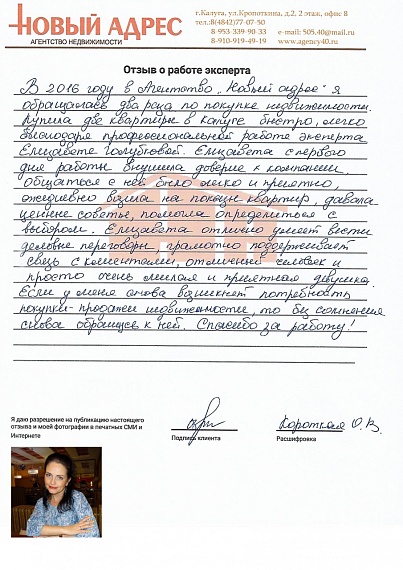 НОВЫЙ АДРЕС
АГЕНТСТВО НЕДВИЖИМОСТИ
г.Калуга, ул.Кропоткина, д.2, 2 этаж, офис 8
тел.:8(4842)77-07-50
8-953 339-90-33 e-mail: 505.40@mail.ru
8-910-919-49-19 www.agency40.ru
Отзыв о работе эксперта
В 2016 году в Агентство „Новый адрес" я
обращалась два раза по покупке недвижимости.
Купила две квартиры в Калуге быстро, легко
благодаря профессиональной работе эксперта
Елизавете Голубковой. Елизавета с первого
дня работы внушила доверие к компании.
Общаться с ней было легко и приятно,
ежедневно возила на показы квартир, давала
ценные советы, помогла определиться с
выбором. Елизавета отлично умеет вести
деловые переговоры, грамотно поддерживает
связь с клиентами, отличный человек и
просто очень милая и приятная девушка.
Если у меня снова возникнет потребность
покупки-продажи недвижимости, то без сомнения
снова обращусь к ней. Спасибо за работу!
Я даю разрешение на публикацию настоящего
отзыва и моей фотографии в печатных СМИ и
Интернете
Подпись клиента
Короткая О.В.
Расшифровка